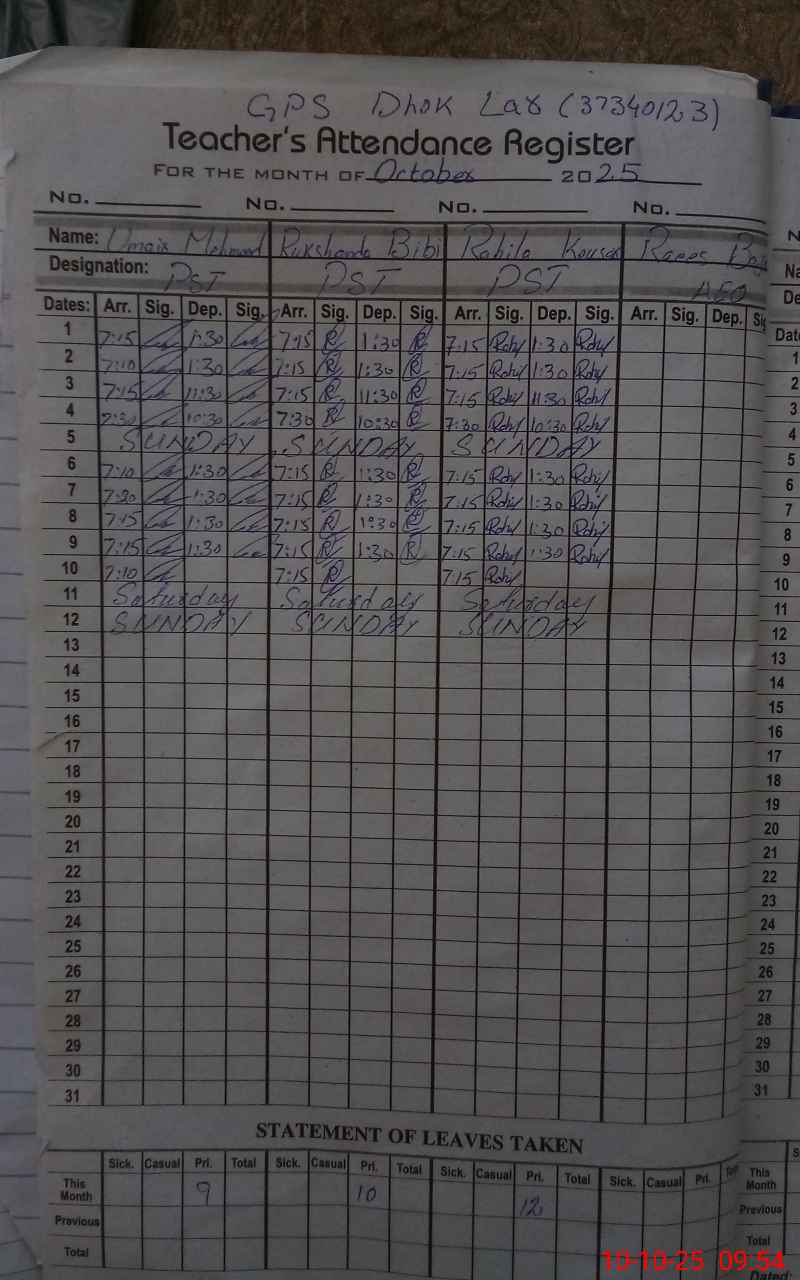 GPS Dhok Lar (37340123)
Teacher's Attendance Register
FOR THE MONTH OF October 2025
No. No. No. No.
Name: Umair Mehmood Rukshanda Bibi Rahila Kousar
Designation: PST PST PST AEO
Dates: Arr. Sig. Dep. Sig. Arr. Sig. Dep. Sig. Arr. Sig. Dep. Sig. Arr. Sig. Dep.
1 7:15 1:30 7:15 R 1:30 R 7:15 1:30
2 7:10 1:30 7:15 R 1:30 R 7:15 1:30
3 7:15 11:30 7:15 R 11:30 R 7:15 11:30
4 7:30 10:30 7:30 R 10:30 R 7:30 10:30
5 SUNDAY SUNDAY SUNDAY
6 7:10 1:30 7:15 R 1:30 R 7:15 1:30
7 7:20 1:30 7:15 R 1:30 R 7:15 1:30
8 7:15 1:30 7:15 R 1:30 R 7:15 1:30
9 7:15 1:30 7:15 R 1:30 R 7:15 1:30
10 7:10 7:15 R 7:15
11 Saturday Saturday Saturday
12 SUNDAY SUNDAY SUNDAY
13
14
15
16
17
18
19
20
21
22
23
24
25
26
27
28
29
30
31
STATEMENT OF LEAVES TAKEN
Sick. Casual Pri. Total Sick. Casual Pri. Total Sick. Casual Pri. Total Sick. Casual Pri.
This Month 9 10 12
Previous
Total
No
Na
De
Date
1
2
3
4
5
6
7
8
9
10
11
12
13
14
15
16
17
18
19
20
21
22
23
24
25
26
27
28
29
30
31
This Month
Previous
Total
Dated:
10-10-25 09:54